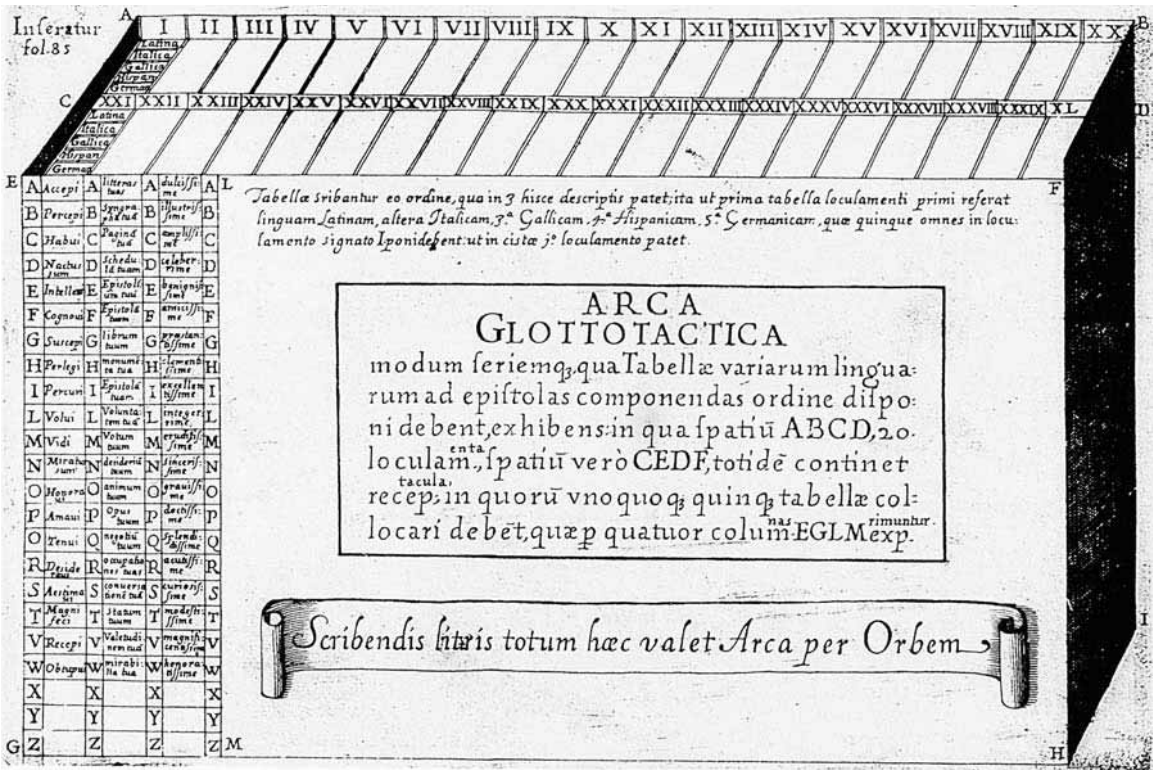 Inseratur
fol. 85
A I II III IV V VI VII VIII IX X XI XII XIII XIV XV XVI XVII XVIII XIX XX B
Latina
Italica
Gallica
Hispan
Germa
C XXI XXII XXIII XXIV XXV XXVI XXVII XXVIII XXIX XXX XXXI XXXII XXXIII XXXIV XXXV XXXVI XXXVII XXXVIII XXXIX XL D
Latina
Italica
Gallica
Hispan
Germa
E A Accepi A litteras tuas A dulcissi: me A L F
B Percepi B B illustris: sime B
C Habui C Paginā tuā C amplissi: me C
D Nactus sum D Schedu: lā tuam D celeber: rime D
E Intellexi E E benignis: sime E
F Cognoui F Epistolā tuam F amicissi: me F
G Suscepi G librum tuum G præstan: tissime G
H Perlegi H monumē: ta tua H clementi: ssime H
I Percurri I Epistolā tuam I excellen tissime I
L Volui L Volunta: tem tuā L integer: rime, L
M Vidi M Votum tuum M erudissi: me M
N Miratus sum N desideriū tuum N sinceris: sime N
O Honora ui O animum tuum O grauissi: me O
P Amaui P Opus tuum P doctissi: me P
O Tenui Q negotiū tuum Q splendi: dissime Q
R Deside raui R occupatio nes tuas R acutissi: me R
S Aestima ui S conuersa tionē tuā S curiosis: sime S
T Magni feci T Statum tuum T modesti: ssime T
V Recepi V Valetudi: nem tuā V magnifi: centissime V
W Obstupui W mirabi: lia tua W honora: tissime W
X X X X
Y Y Y Y
G Z Z Z Z M H
Tabellæ sribantur eo ordine, quo in 3 hisce descriptis patet; ita ut prima tabella loculamenti primi referat
linguam Latinam, altera Italicam, 3.ª Gallicam, 4.ª Hispanicam, 5.ª Germanicam, quæ quinque omnes in locu:
lamento signato I poni debent: ut in cista j.º loculamento patet.
ARCA
GLOTTOTACTICA
modum seriemqꝫ, qua Tabellæ variarum lingua:
rum ad epistolas componendas ordine dispo:
ni debent, exhibens: in qua spatiū ABCD, 20.
loculam.enta, spatiū verò CEDF, totidē continet
recep:tacula, in quorū vnoquoqꝫ quinqꝫ tabellæ col:
locari debēt, quæ p quatuor colum:nas EGLM exp.rimuntur.
Scribendis litĩris totum hæc valet Arca per Orbem
I